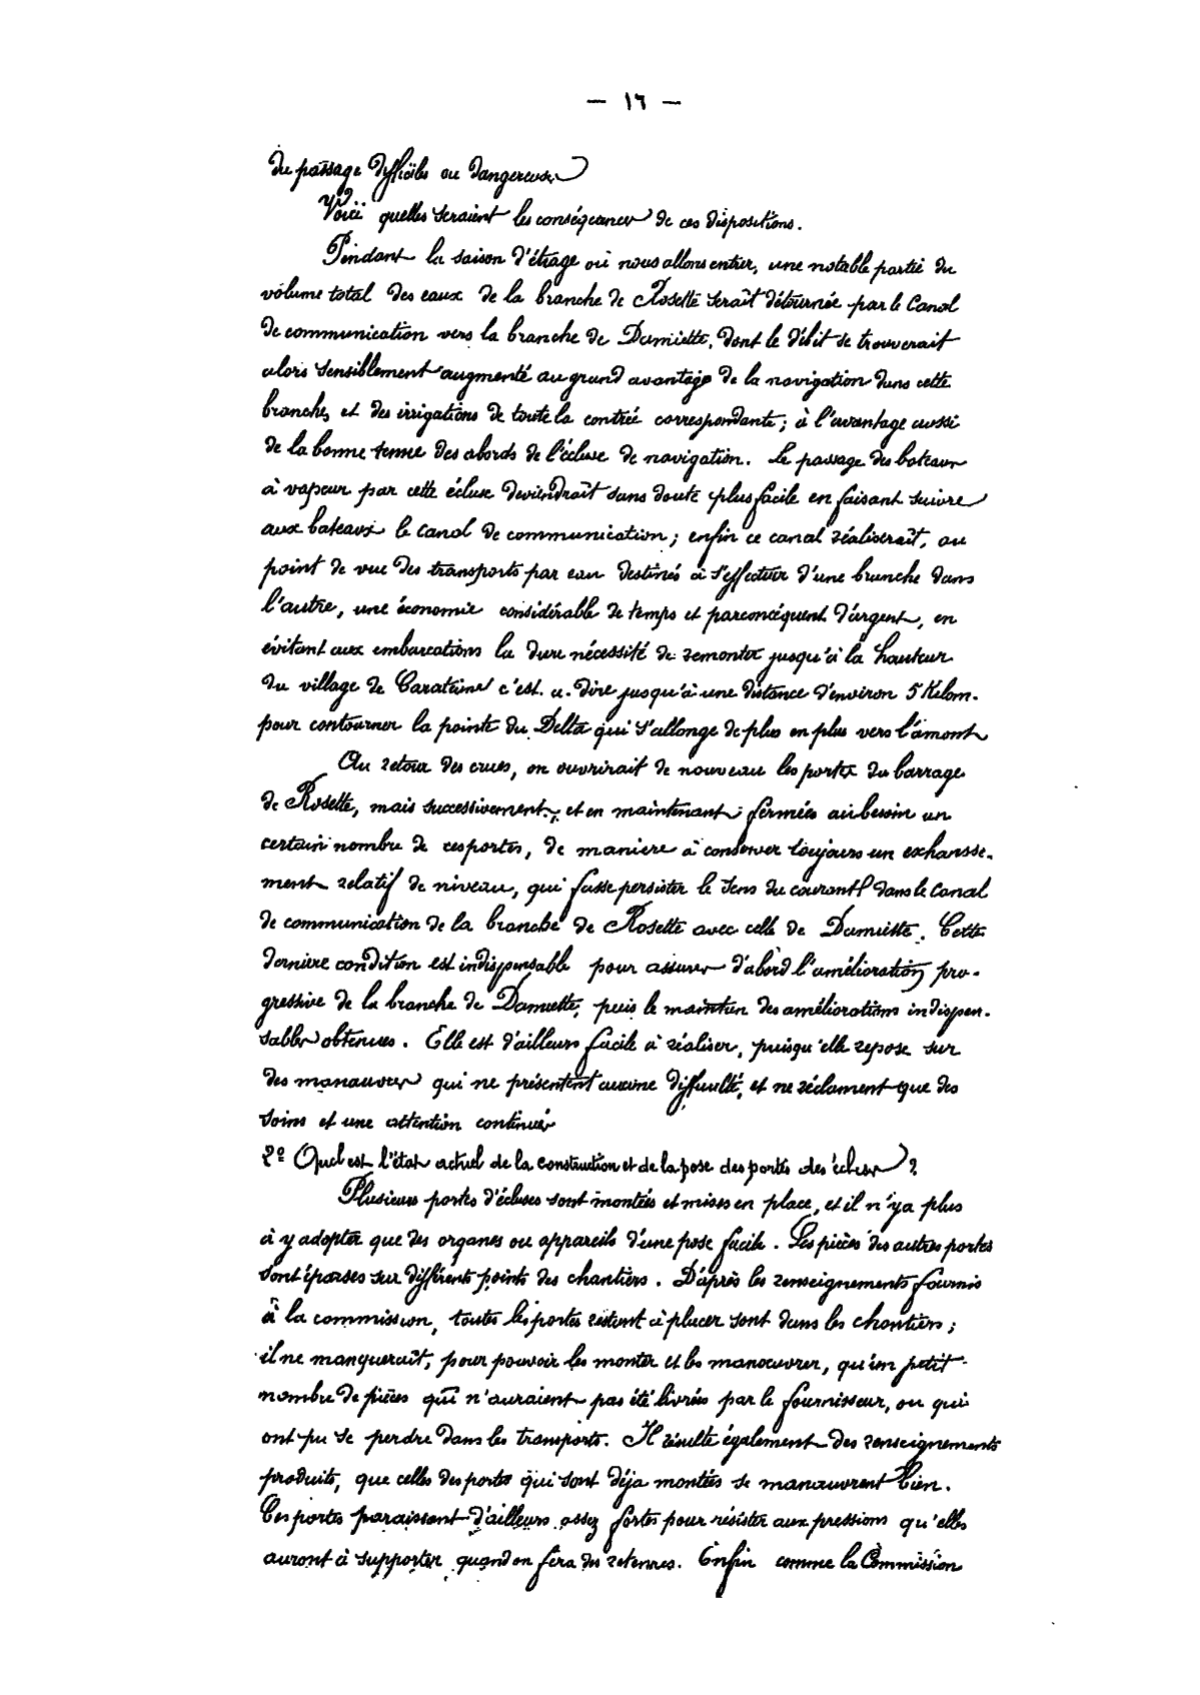 — ١٦ —
du passage difficiles ou dangereux
Voici quelles seraient les conséquences de ces dispositions.
Pendant la saison d'étiage où nous allons entrer, une notable partie du
volume total des eaux de la branche de Rosette serait détournée par le Canal
de communication vers la branche de Damiette, dont le débit se trouverait
alors sensiblement augmenté au grand avantage de la navigation dans cette
branche, et des irrigations de toute la contrée correspondante; à l'avantage aussi
de la bonne tenue des abords de l'écluse de navigation. Le passage des bateaux
à vapeur par cette écluse deviendrait sans doute plus facile en faisant suivre
aux bateaux le canal de communication; enfin ce canal réaliserait, au
point de vue des transports par eau destinés à s'effectuer d'une branche dans
l'autre, une économie considérable de temps et parconcéquent d'argent, en
évitant aux embarcations la dure nécessité de remonter jusqu'à la hauteur
du village de Caratéine c'est-a-dire jusqu'à une distance d'environ 5 Kilom.
pour contourner la pointe du Delta qui s'allonge de plus en plus vers l'amont
Au retour des crues, on ouvrirait de nouveau les portes du barrage
de Rosette, mais successivement, et en maintenant fermées au besoin un
certain nombre de ces portes, de maniere à conserver toujours un exhausse-
ment relatif de niveau, qui fasse persister le sens du courant dans le Canal
de communication de la branche de Rosette avec celle de Damiette. Cette
derniere condition est indispensable pour assurer d'abord l'amélioration pro-
gressive de la branche de Damiette, puis le maintien des améliorations indispen-
sables obtenues. Elle est d'ailleurs facile à réaliser, puisqu'elle repose sur
des manœuvres qui ne présentent aucune difficulté, et ne réclament que des
soins et une attention continués
2º Quel est l'état actuel de la construction et de la pose des portes des écluses?
Plusieurs portes d'écluses sont montées et mises en place, et il n'y a plus
à y adopter que des organes ou appareils d'une pose facile. Les pièces des autres portes
sont éparses sur différents points des chantiers. D'après les renseignements fournis
à la commission, toutes les portes restant à placer sont dans les chantiers;
il ne manquerait, pour pouvoir les monter et les manœuvrer, qu'un petit
nombre de pièces qui n'auraient pas été livrées par le fournisseur, ou qui
ont pu se perdre dans les transports. Il résulte également des renseignements
produits, que celles des portes qui sont déja montées se manœuvrent bien.
Ces portes paraissent d'ailleurs assez fortes pour résister aux pressions qu'elles
auront à supporter quand on fera des retenues. Enfin comme la Commission